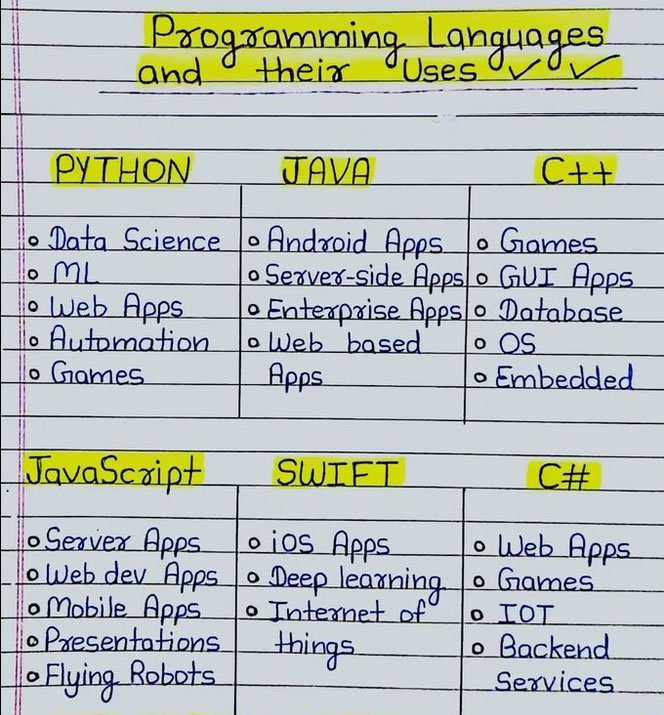 Programming Languages
and their Uses ✓ ✓
PYTHON
o Data Science
o ML
o Web Apps
o Automation
o Games
JAVA
o Android Apps
o Server-side Apps
o Enterprise Apps
o Web based
Apps
C++
o Games
o GUI Apps
o Database
o OS
o Embedded
JavaScript
o Server Apps
o Web dev Apps
o Mobile Apps
o Presentations
o Flying Robots
SWIFT
o iOS Apps
o Deep learning
o Internet of
things
C#
o Web Apps
o Games
o IOT
o Backend
Services